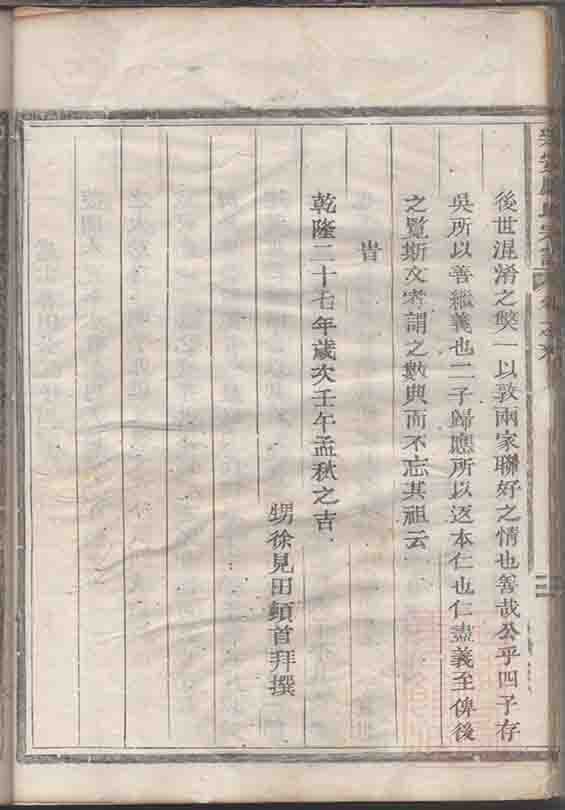 後世混淆之獘一以敦兩家聯好之情也善哉公乎四子存
吳所以善繼義也二子歸應所以返本仁也仁盡義至俾後
之覽斯文者謂之數典而不忘其祖云
旹
乾隆二十七年歲次壬午孟秋之吉
甥徐見田頓首拜撰